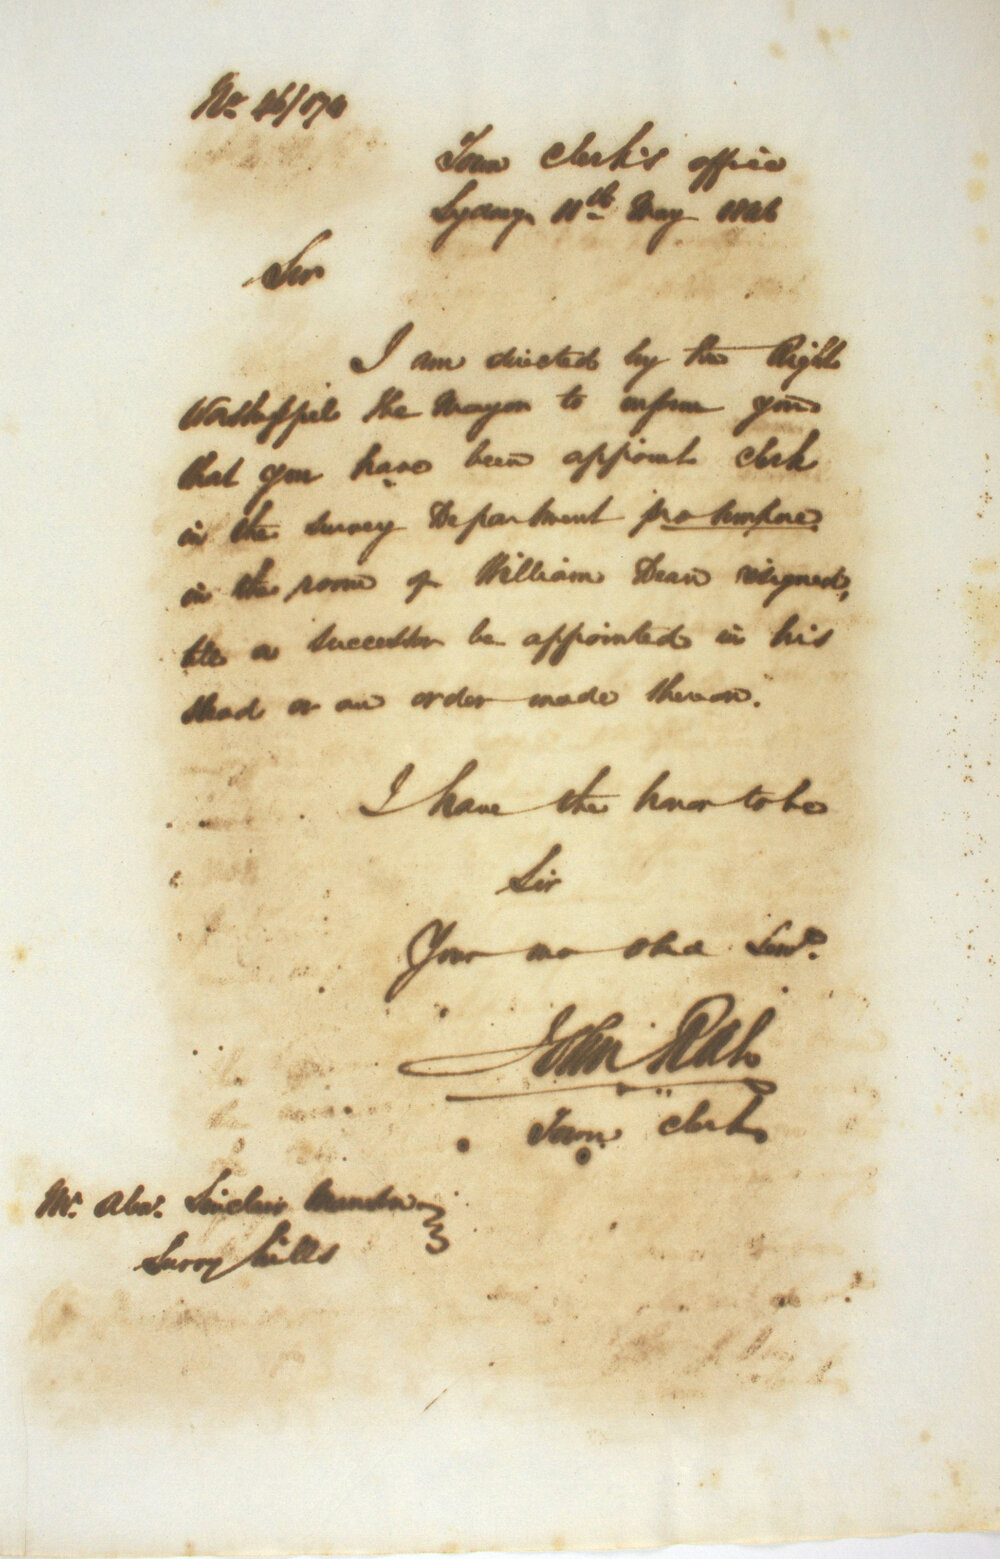 No 46/174
Town Clerk's office
Sydney 11th May 1846
Sir
I am directed by the Right
Worshipful the Mayor to inform you
that you have been appoint clerk
in the Survey Department pro tempore
in the room of William Dean resigned,
till a successor be appointed in his
stead or an order made thereon.
I have the honor to be
Sir
Your mo obed Servt.
John Rae
Town Clerk
Mr. Sinclair
Surry Hills